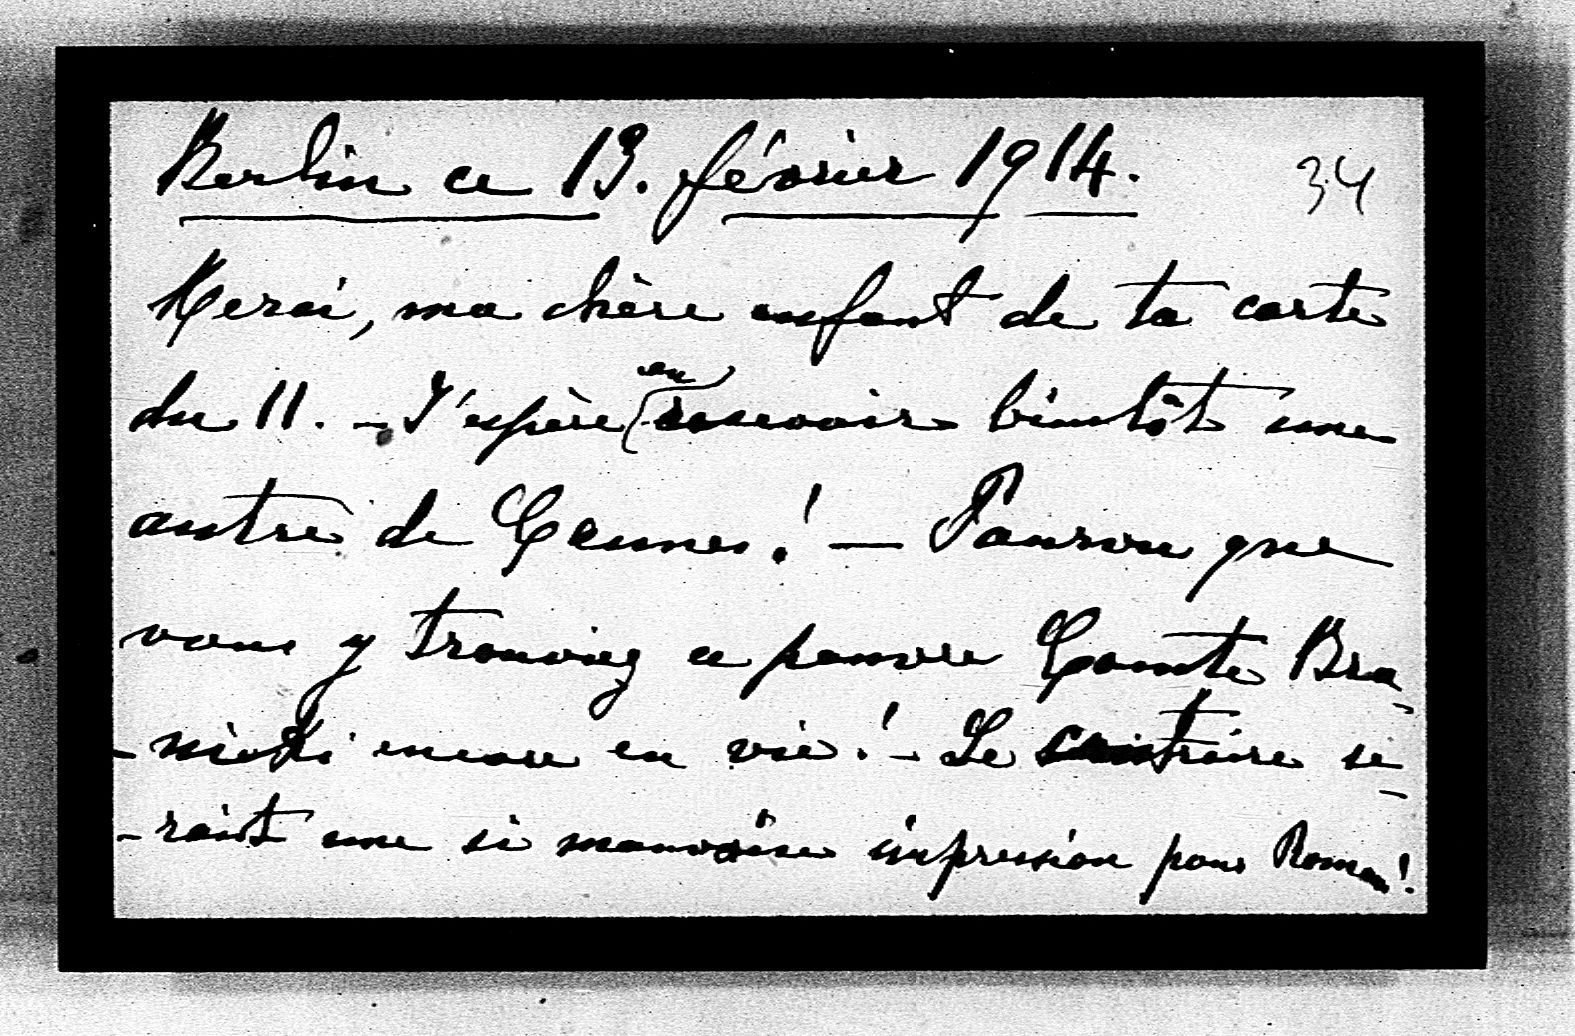 Berlin ce 13. février 1914. 34
Merci, ma chère enfant de ta carte
du 11. – J'espère en recevoir bientôt une
autre de Cannes! — Pourvu que
vous y trouviez ce pauvre Comte Bra-
-nicki encore en vie! – Le contraire se-
-rait une si mauvaise impression pour Roman!